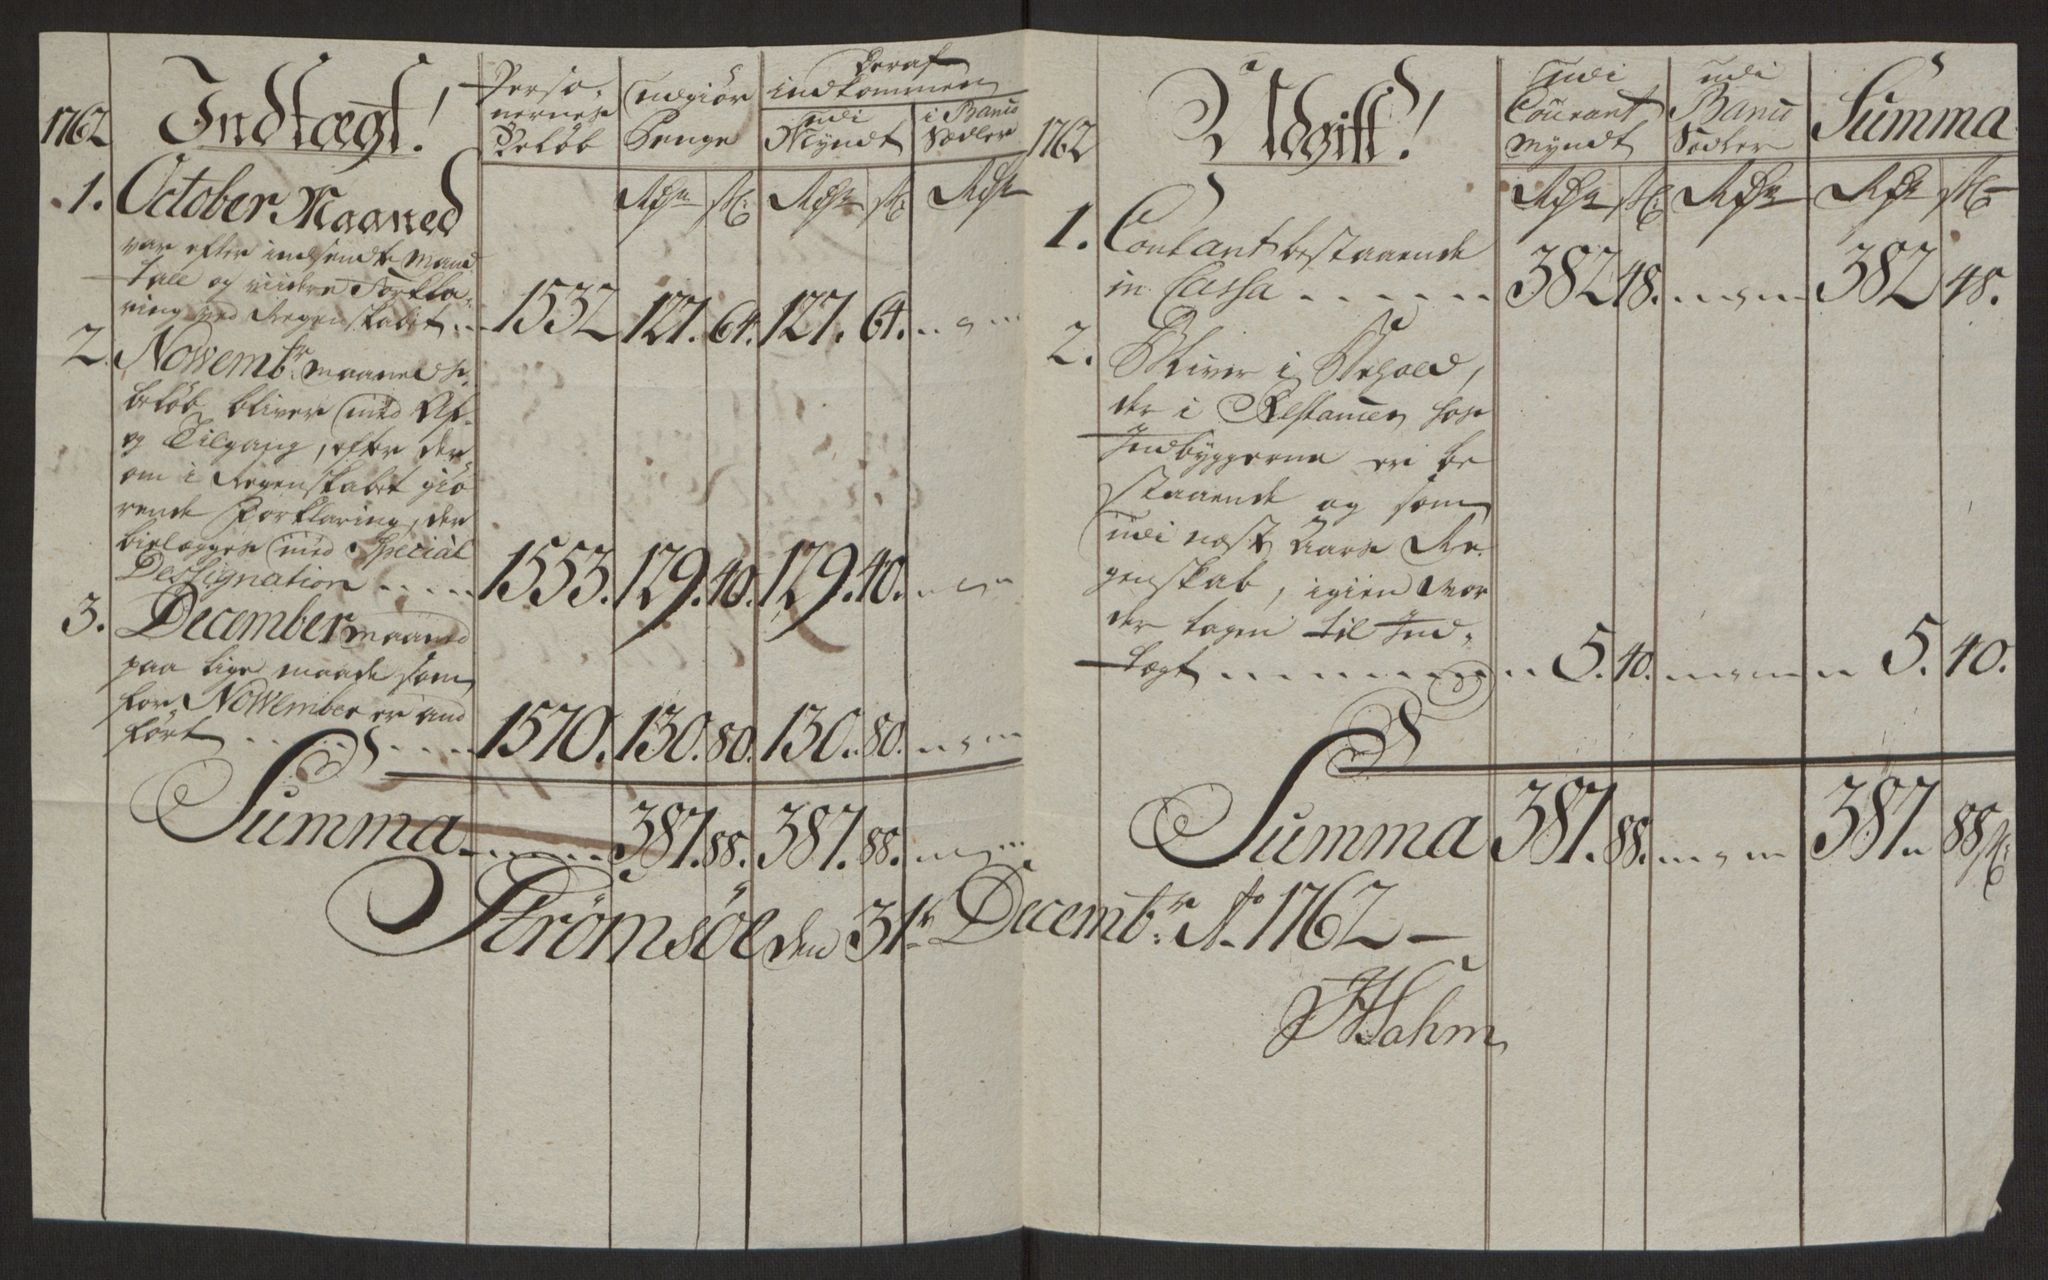 1762
Indtægt!
Perso-
nernes
Beløb
Udgiør
Penge
Deraf
indkommen
udi
Myndt
i Banco
Sedler
Rdr ß:
Rdr ß:
Rdr
1. October Maaned
var efter indsendte Mand
talle og videre Forkla-
ring ved Regenskabet ..
1532 127. 64. 127. 64. .. " ..
2. Novembr. maaneds
beløb bliver med Af-
og Tilgang, efter der
om i Regenskabet giø
rende Forklaring, der
bielægges med Special
Designation . . . . .
1553. 129. 40. 129. 40. .. " ..
3. December maaned
paa lige maade som
for November er and
ført . . . . . .
1570. 130. 80. 130. 80. .. " ..
Summa . . . . . 387. 88. 387. 88. .. " ..
1762
Udgift!
udi
Courant
Myndt
udi
Banco
Sedler
Summa
Rdr ß:
Rdr
Rdr ß:
1. Contant bestaaende
in Cassa . . . . . . 382 48. .. " .. 382 48.
2. Bliver i Behold,
der i Restancer hos
Indbyggerne er be
staaende og som
udi næste Aars Re-
genskab, igien vor
der tagen til Ind-
tægt . . . . . . . . 5. 40. .. " .. 5. 40.
Summa 387. 88. .. " .. 387. 88 ß:
Strømsøe den 31te Decembr. Ao. 1762 —
Hahm